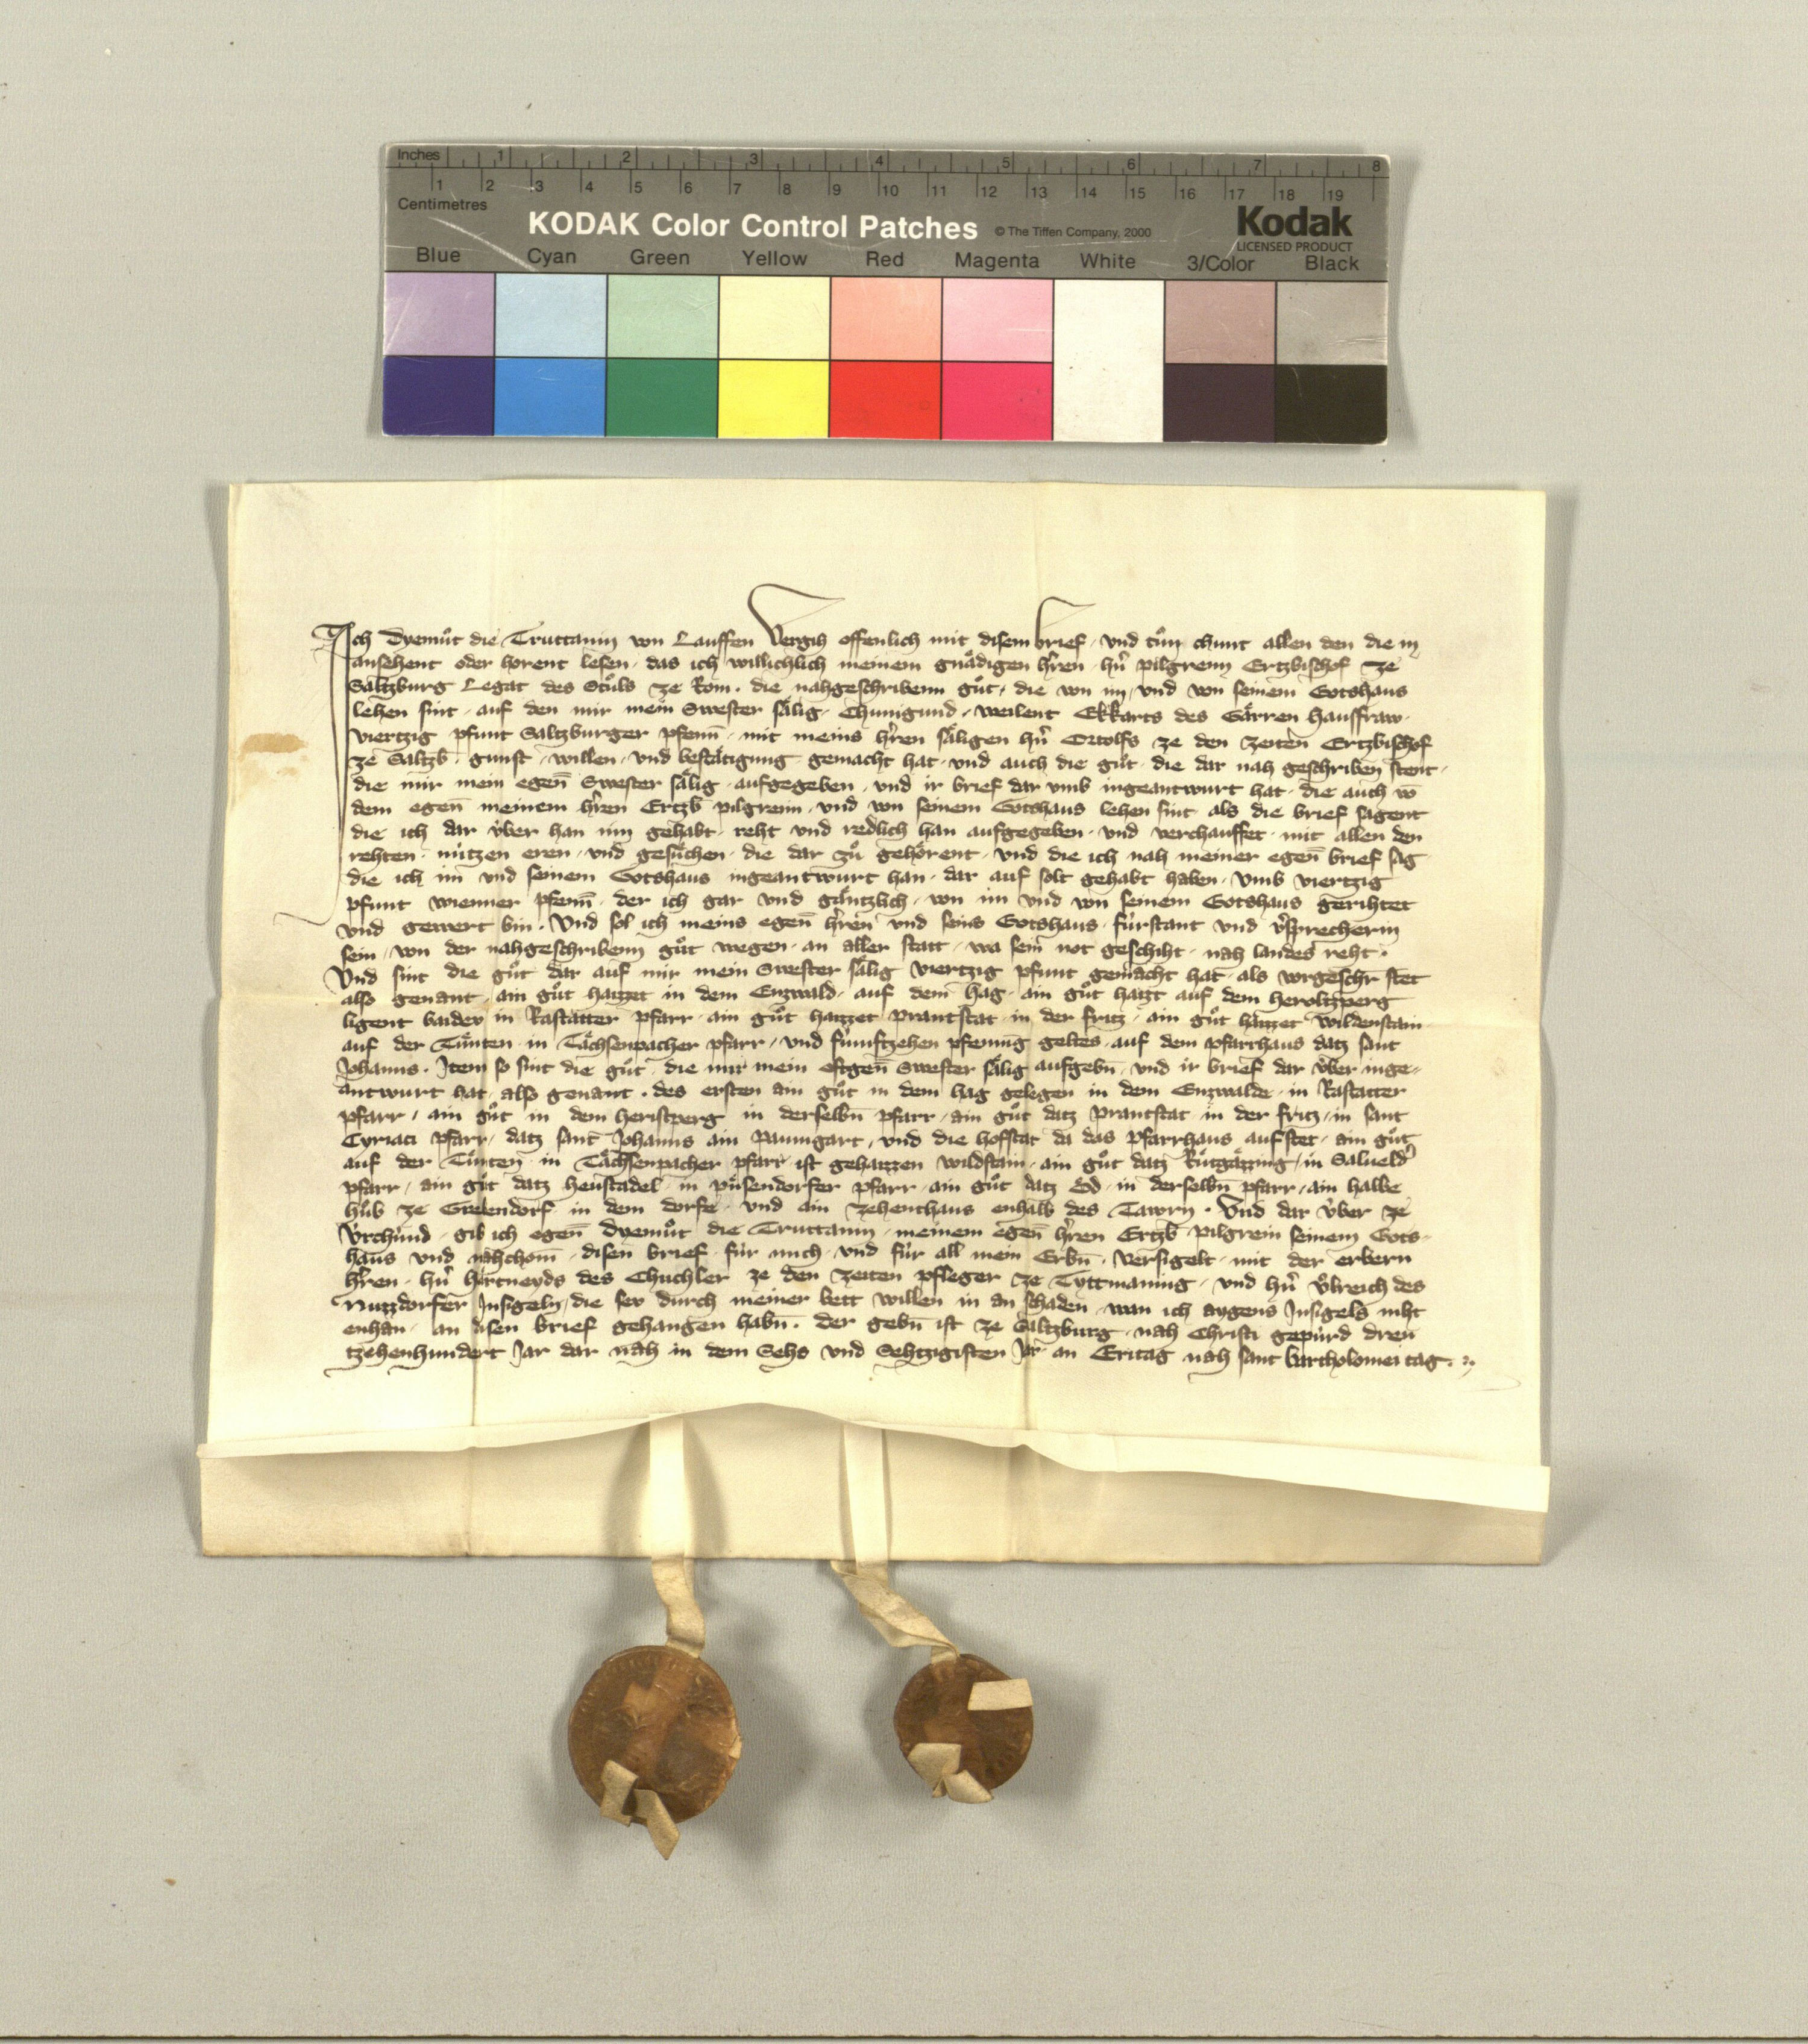 Inches 1 2 3 4 5 6 7 8
1 2 3 4 5 6 7 8 9 10 11 12 13 14 15 16 17 18 19
Centimetres
KODAK Color Control Patches © The Tiffen Company, 2000 Kodak
LICENSED PRODUCT
Blue Cyan Green Yellow Red Magenta White 3/Color Black
Ich Dyemůt die Truttanin von Lauffen Vergih offenlich mit disem brief · und tůn chunt allen den die in
ansehent oder hörent lesen · das ich willichlich meinem gnädigen hr̄ren · hn̄ pilgreim Ertzbischof ze
Saltzburg Legat des Stůls ze Rom · die nahgeschribenn gůt · die von im · und von seinem Gotshaus
lehen sint · auf den mir mein Swester sälig · Chunigund · weilent Ekkarts des Gärren hauffraw ·
viertzig pfunt Saltzburger pfenn̄ · mit meins hr̄ren säligen hn̄ Ortolfs ze den zeiten Ertzbischof
ze Saltzb · gunst · willen · und bestätigung gemacht hat · und auch die gůt · die dar nah geschriben stent ·
die mir mein egen̄ Swester sälig · aufgegeben · und ir brief dar umb ingeantwurt hat · die auch vō
dem egen̄ meinem hr̄ren Ertzb pilgreim · und von seinem Gotshaus lehen sint als die brief sagent
die ich dar über han inn gehabt · reht und redlich han aufgegeben · und verchauffet · mit allen den
rehten · nützen eren · und gesůchen · die dar zů gehörent · und die ich nah meiner egen̄ brief sag
die ich im und seinem Gotshaus ingeantwurt han · dar auf solt gehabt haben · umb viertzig
pfunt wienner pfenn̄ · der ich gar und gäntzlich · von im und von seinem Gotshaus gerihtet
und gewert bin · Und sol ich meins egen̄ hr̄ren und seins Gotshaus · fürstant und v̓sprecherin
sein · von der nahgeschribenn gůt wegen · an aller statt · wa sein not geschiht · nah landes reht ·
Und sint die gůt dar auf mir mein Swester sälig viertzig pfunt gemacht hat · als vorgeschr stet
also genant · ain gůt haizzet in dem Enzwald · auf dem hag · ain gůt haizt auf dem heroltzperg
ligent baidev in Rastatter pfarr · ain gůt haizzet prantstat · in der fritz · ain gůt haizzet wildenstain
auf der Tünten · in Tächsenpacher pfarr · und fünftzehen pfenning geltes · auf dem pfarrhaus datz sant
Johanns · Item so sint die gůt · die mir mein oftgen̄ Swester sälig aufgebn̄ · und ir brief dar über inge-
antwurt hat · also genant · des ersten ain gůt in dem hag gelegen in dem Enzwalde · in Rastatter
pfarr · ain gůt in dem heritzperg in derselbn̄ pfarr · ain gůt datz prantstat in der fritz · in sant
Cyriaci pfarr · datz sant Johanns ain paumgart · und die hofstat da das pfarrhaus auf stet · ain gůt
auf der Tünten in Tächsenpacher pfarr ist gehaizzen wildstain · ain gůt datz Rützgäzzing · in Salueld̓
pfarr · ain gůt datz heustadel in püsendorfer pfarr · ain gůt datz Öd · in derselbn̄ pfarr · ain halbe
hůb ze Grelendorf in dem dorfe · und ain zehenthaus enhalb des Tawrn · Und dar über ze
Urchund · gib ich egen̄ Dyemůt die Truttanin · meinem egen̄ hr̄ren Ertzb · pilgrein seinem Gots-
haus und nahchom̄ · disen brief · für mich · und für all mein Erbn̄ · versigelt · mit der erbern
hr̄ren · hn̄ hartneyds des Chuchler ze den zeiten pfleger ze Tyttmaning · und hn̄ Ülreich des
Nuzzdorfer Insigeln · die sev durch meiner bett willen in an schaden · wan ich aygens Insigels niht
enhan · an disen brief gehangen habn̄ · der gebn̄ ist ze Saltzburg · nah Christi gepürd dreu
tzehenhundert Jar dar nah in dem Sehs und Sehtzigisten Jar · an Eritag nah sant bartholomei tag ·